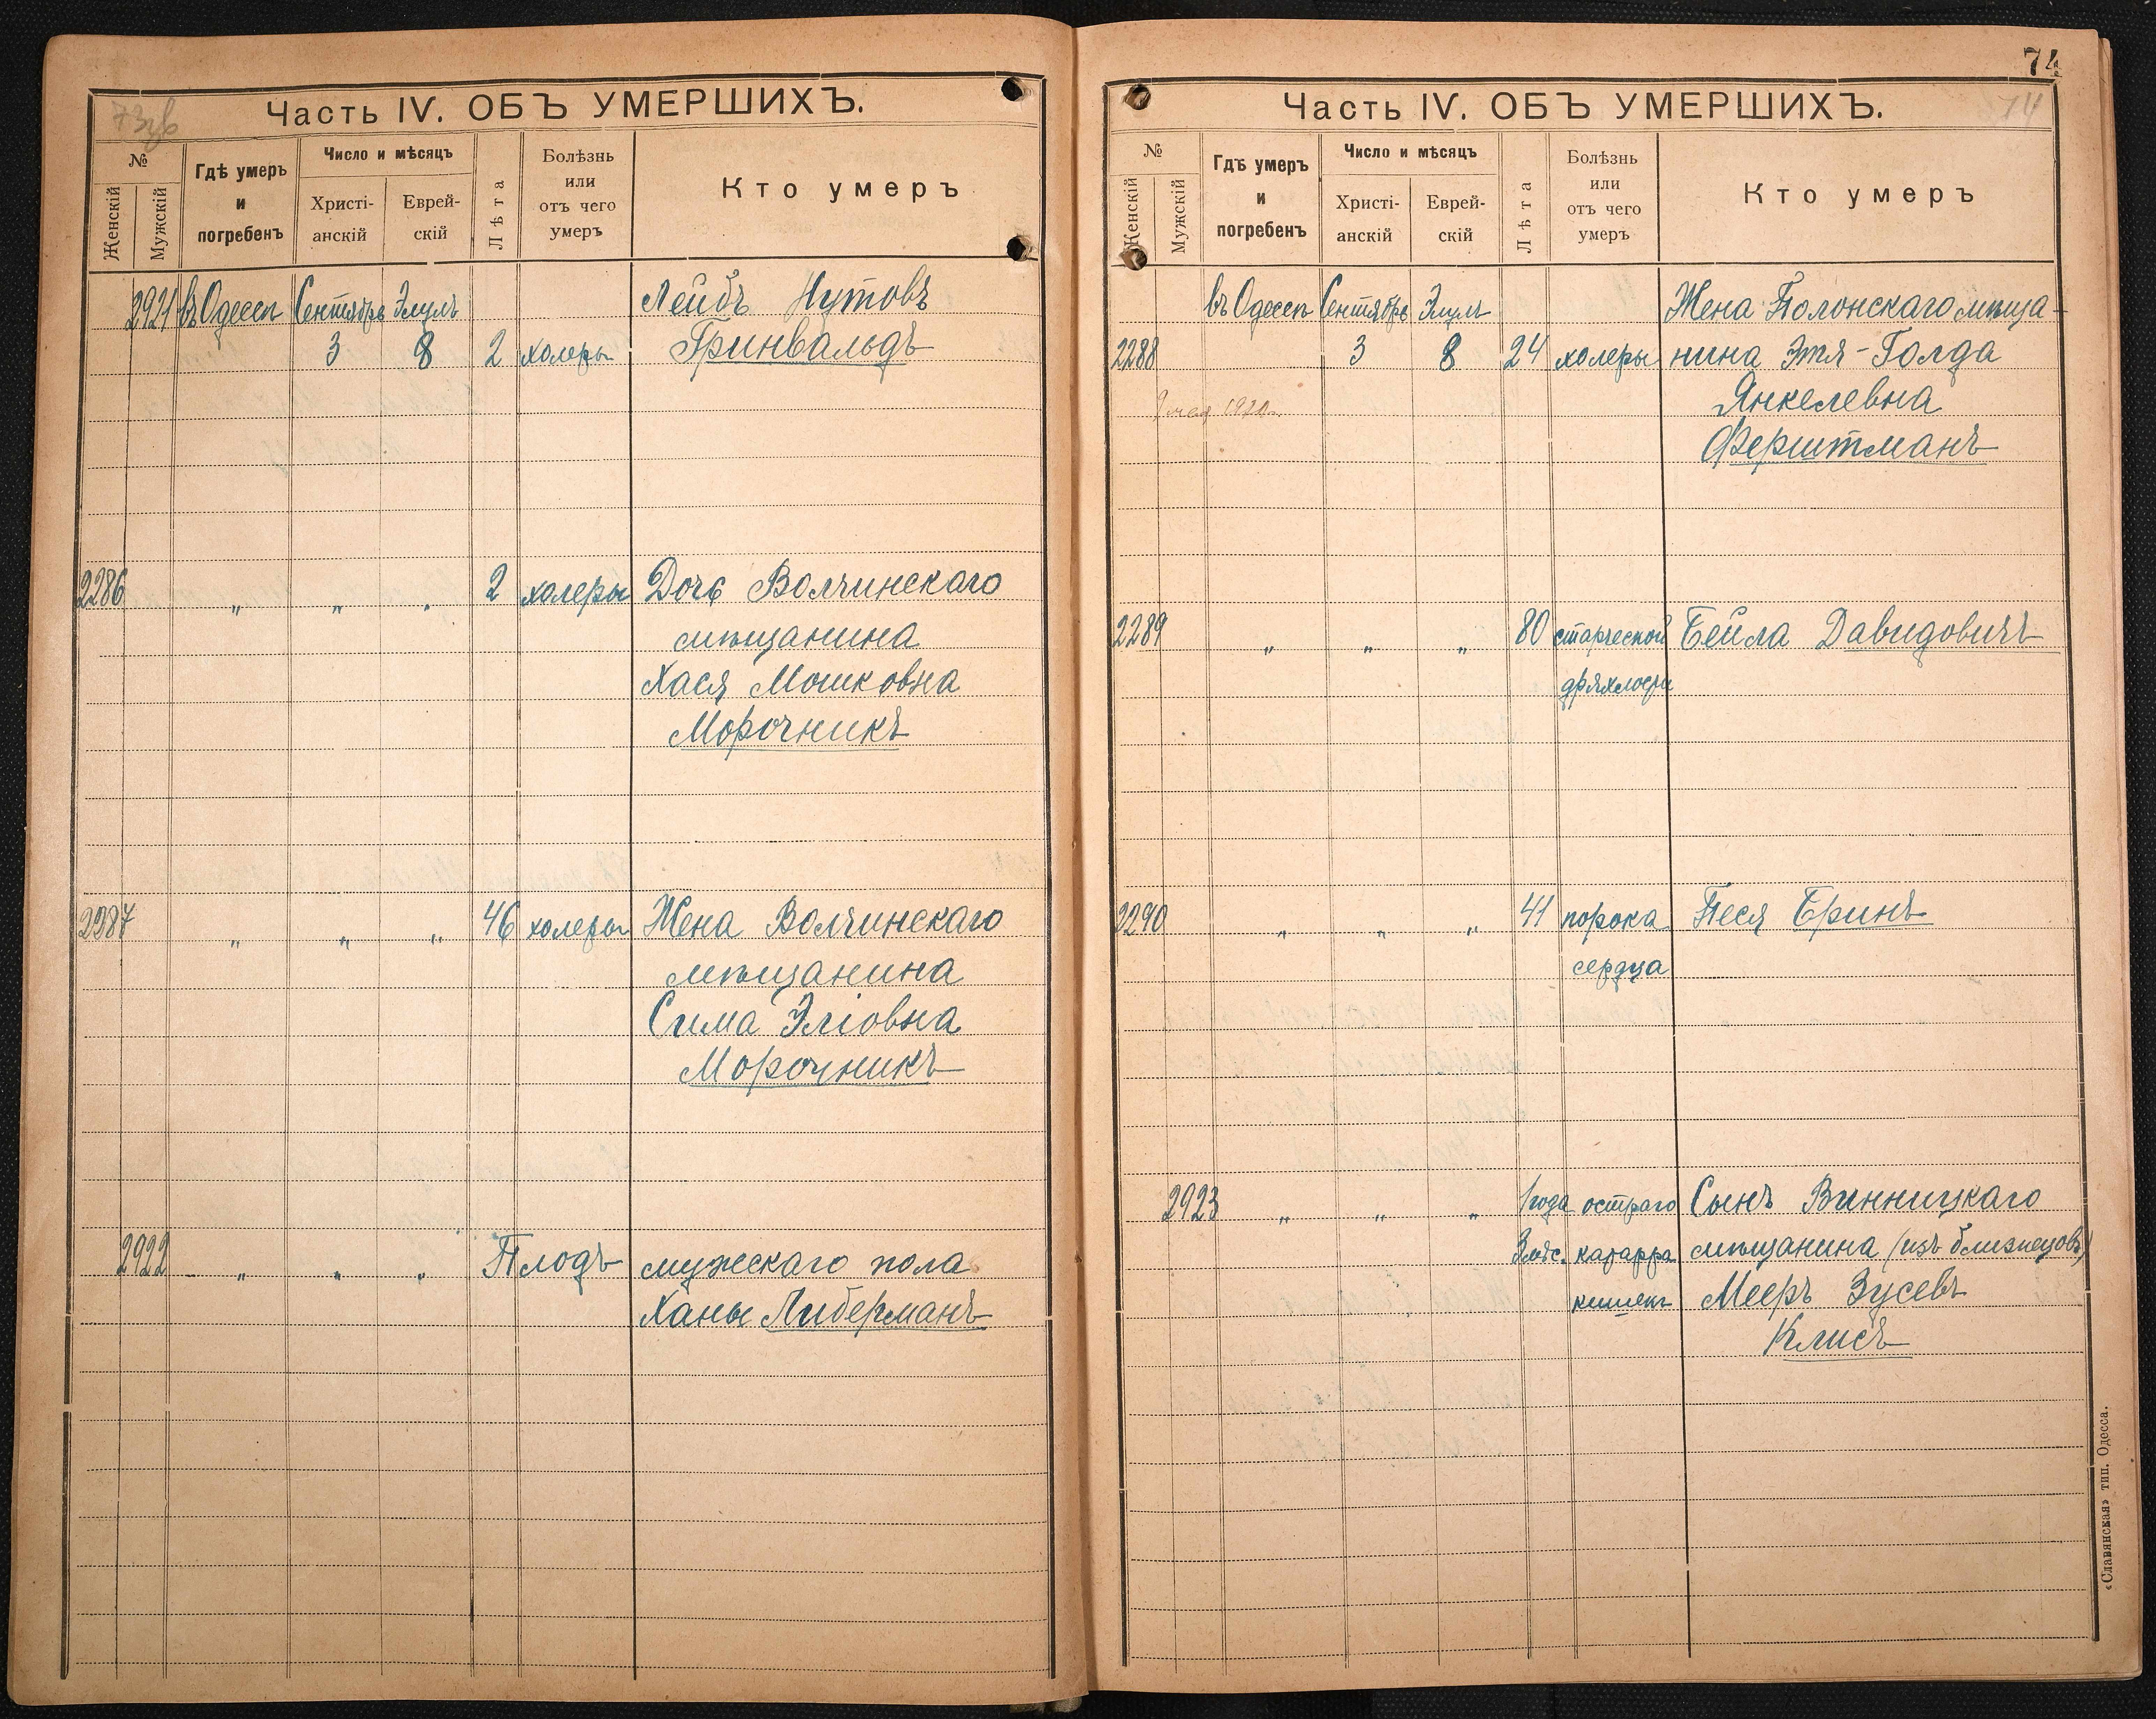 73зв
Часть IV. ОБЪ УМЕРШИХЪ.
№
Женскій
Мужскій
Гдѣ умеръ
и
погребенъ
Число и мѣсяцъ
Христі-
анскій
Еврей-
скій
Лѣта
Болѣзнь
или
отъ чего
умеръ
Кто умеръ
2921 въ Одессѣ Сентябрь Элулъ Лейбъ Нутовъ
3 8 2 холеры Гринвальдъ
2286 „ „ „ 2 холеры Дочь Волчинскаго
мѣщанина
Хася Мошковна
Морочникъ
2287 „ „ „ 46 холеры Жена Волчинскаго
мѣщанина
Сима Эліовна
Морочникъ
2922 „ „ „ Плодъ мужескаго пола
Ханы Либерманъ
74
74
Часть IV. ОБЪ УМЕРШИХЪ.
№
Женскій
Мужскій
Гдѣ умеръ
и
погребенъ
Число и мѣсяцъ
Христі-
анскій
Еврей-
скій
Лѣта
Болѣзнь
или
отъ чего
умеръ
Кто умеръ
въ Одессѣ Сентябрь Элулъ Жена Полонскаго мѣща-
2288 3 8 24 холеры нина Этя-Голда
Янкелевна
Ферштманъ
2289 „ „ „ 80 старческой Бейла Давидовичъ
дряхлости
2290 „ „ „ 41 порока Песя Бринъ
сердца
2923 „ „ „ 1 года остраго Сынъ Винницкаго
3 мѣс. катарра мѣщанина (изъ близнецовъ)
кишекъ Мееръ Зусевъ
Клисъ
«Славянская» тип. Одесса.